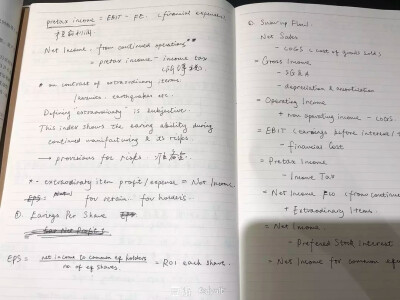 pretax income = EBIT - financial expense
Net Income from continued operations **
= pretax income - income tax
* on contract of extraordinary items
(earthquakes etc.
Defining extraordinary is subjective.
This index shows the earing ability during
continued manufacturing & its risks.
→ provisions for risks.
* - extraordinary item profit/expense = Net Income.
for retain. for holders.
② Earings Per Share
EPS = net income to common eq holders / no of eq shares. = ROI each share.
Sum-up Flow:
Net Sales
- COGS (cost of goods sold)
= Gross Income
- SG & A
- depreciation & amortization
= Operating Income
+ non operating income - LOSS.
= EBIT (earnings before interest / t
- financial cost
= Pretax Income
- Income Tax
= Net Income (from continue
+ Extraordinary Items
= Net Income
- Prefered Stock Interest
= Net Income for common eq